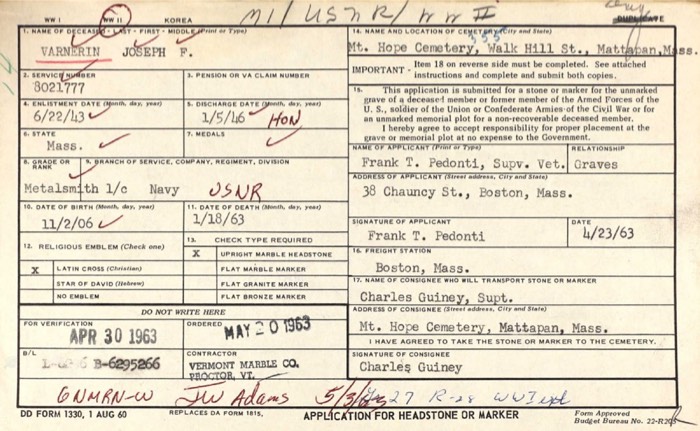 WW I WW II KOREA
M1/USNR/WW II
DUPLICATE
1. NAME OF DECEASED - LAST - FIRST - MIDDLE (Print or Type)
VARNERIN JOSEPH F.
14. NAME AND LOCATION OF CEMETERY (City and State)
Mt. Hope Cemetery, Walk Hill St., Mattapan, Mass.
2. SERVICE NUMBER
8021777
3. PENSION OR VA CLAIM NUMBER
IMPORTANT - Item 18 on reverse side must be completed. See attached instructions and complete and submit both copies.
4. ENLISTMENT DATE (Month, day, year)
6/22/43
5. DISCHARGE DATE (Month, day, year)
1/5/46 HON
15. This application is submitted for a stone or marker for the unmarked
grave of a deceased member or former member of the Armed Forces of the
U. S., soldier of the Union or Confederate Armies of the Civil War or for
an unmarked memorial plot for a non-recoverable deceased member.
I hereby agree to accept responsibility for proper placement at the
grave or memorial plot at no expense to the Government.
6. STATE
Mass.
7. MEDALS
NAME OF APPLICANT (Print or Type) RELATIONSHIP
Frank T. Pedonti, Supv. Vet. Graves
8. GRADE OR RANK
9. BRANCH OF SERVICE, COMPANY, REGIMENT, DIVISION
Metalsmith 1/c Navy USNR
ADDRESS OF APPLICANT (Street address, City and State)
38 Chauncy St., Boston, Mass.
10. DATE OF BIRTH (Month, day, year)
11/2/06
11. DATE OF DEATH (Month, day, year)
1/18/63
SIGNATURE OF APPLICANT DATE
Frank T. Pedonti 4/23/63
12. RELIGIOUS EMBLEM (Check one)
X LATIN CROSS (Christian)
STAR OF DAVID (Hebrew)
NO EMBLEM
13. CHECK TYPE REQUIRED
X UPRIGHT MARBLE HEADSTONE
FLAT MARBLE MARKER
FLAT GRANITE MARKER
FLAT BRONZE MARKER
16. FREIGHT STATION
Boston, Mass.
17. NAME OF CONSIGNEE WHO WILL TRANSPORT STONE OR MARKER
Charles Guiney, Supt.
DO NOT WRITE HERE
FOR VERIFICATION
APR 30 1963
ORDERED
MAY 20 1963
ADDRESS OF CONSIGNEE (Street address, City and State)
Mt. Hope Cemetery, Mattapan, Mass.
I HAVE AGREED TO TAKE THE STONE OR MARKER TO THE CEMETERY.
B/L
B-6295266
CONTRACTOR
VERMONT MARBLE CO.
PROCTOR, VT.
SIGNATURE OF CONSIGNEE
Charles Guiney
GNMRN-W JW Adams 5/3/63 27 R-28
DD FORM 1330, 1 AUG 60 REPLACES DA FORM 1815, APPLICATION FOR HEADSTONE OR MARKER
Form Approved
Budget Bureau No. 22-R205